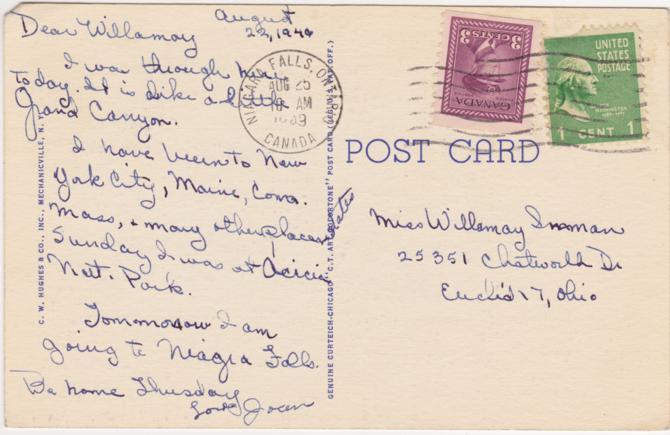 August
23, 1949
Dear Willamay
I was though here
today. It is like a little
Grand Canyon.
I have been to New
York City, Maine, Conn.
Mass, + many other places states
Sunday I was at Acicia
Nat. Park.
Tommorow I am
going to Niagra Falls.
Be home Thusday
Love Joan
C. W. HUGHES & CO., INC., MECHANICVILLE, N. Y.
GENUINE CURTEICH-CHICAGO "C. T. ART-COLORTONE" POST CARD (REG. U. S. PAT. OFF.)
NIAGARA FALLS, ONTARIO
AUG 25
AM
CANADA
3 CENTS 3
CANADA
UNITED
STATES
POSTAGE
WASHINGTON
1 CENT 1
POST CARD
Miss Willamay Inman
25351 Chatworth Dr
Euclid 17, Ohio